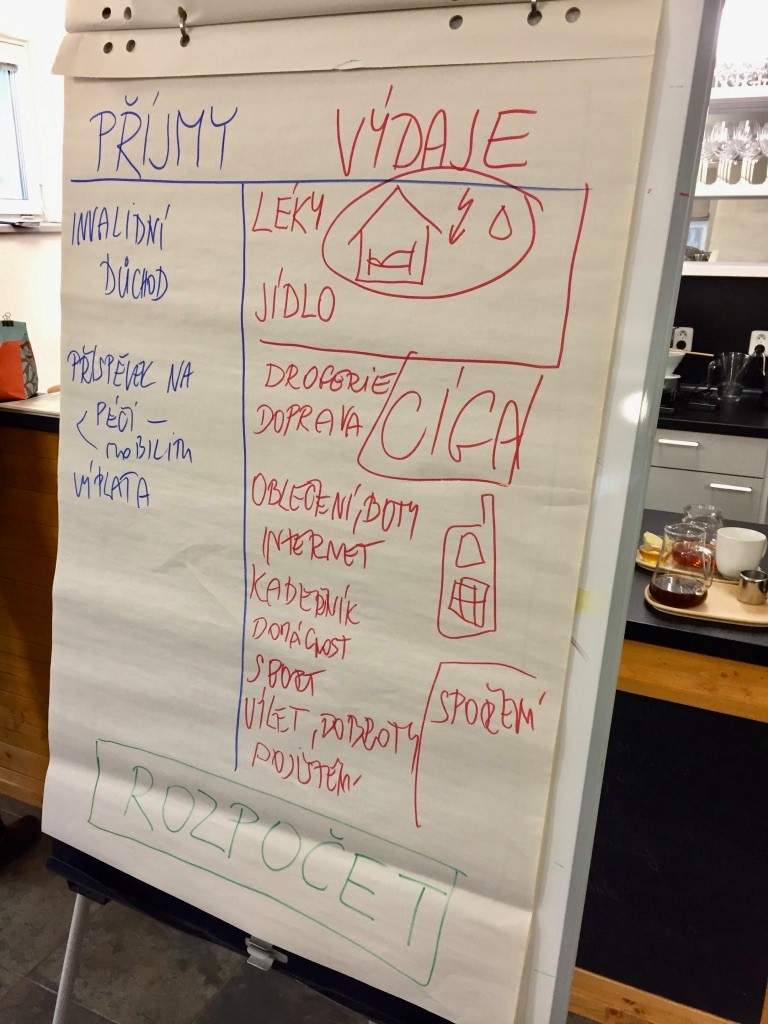 PŘÍJMY
VÝDAJE
INVALIDNÍ
DŮCHOD
PŘÍSPĚVEK NA
PÉČI –
mobilitu
VÝPLATA
LÉKY
JÍDLO
DROGERIE
DOPRAVA
CÍGA
OBLEČENÍ, BOTY
INTERNET
KADEŘNÍK
DOMÁCNOST
SPORT
VÝLET, DOBROTY
POJIŠTĚNÍ
SPOŘENÍ
ROZPOČET